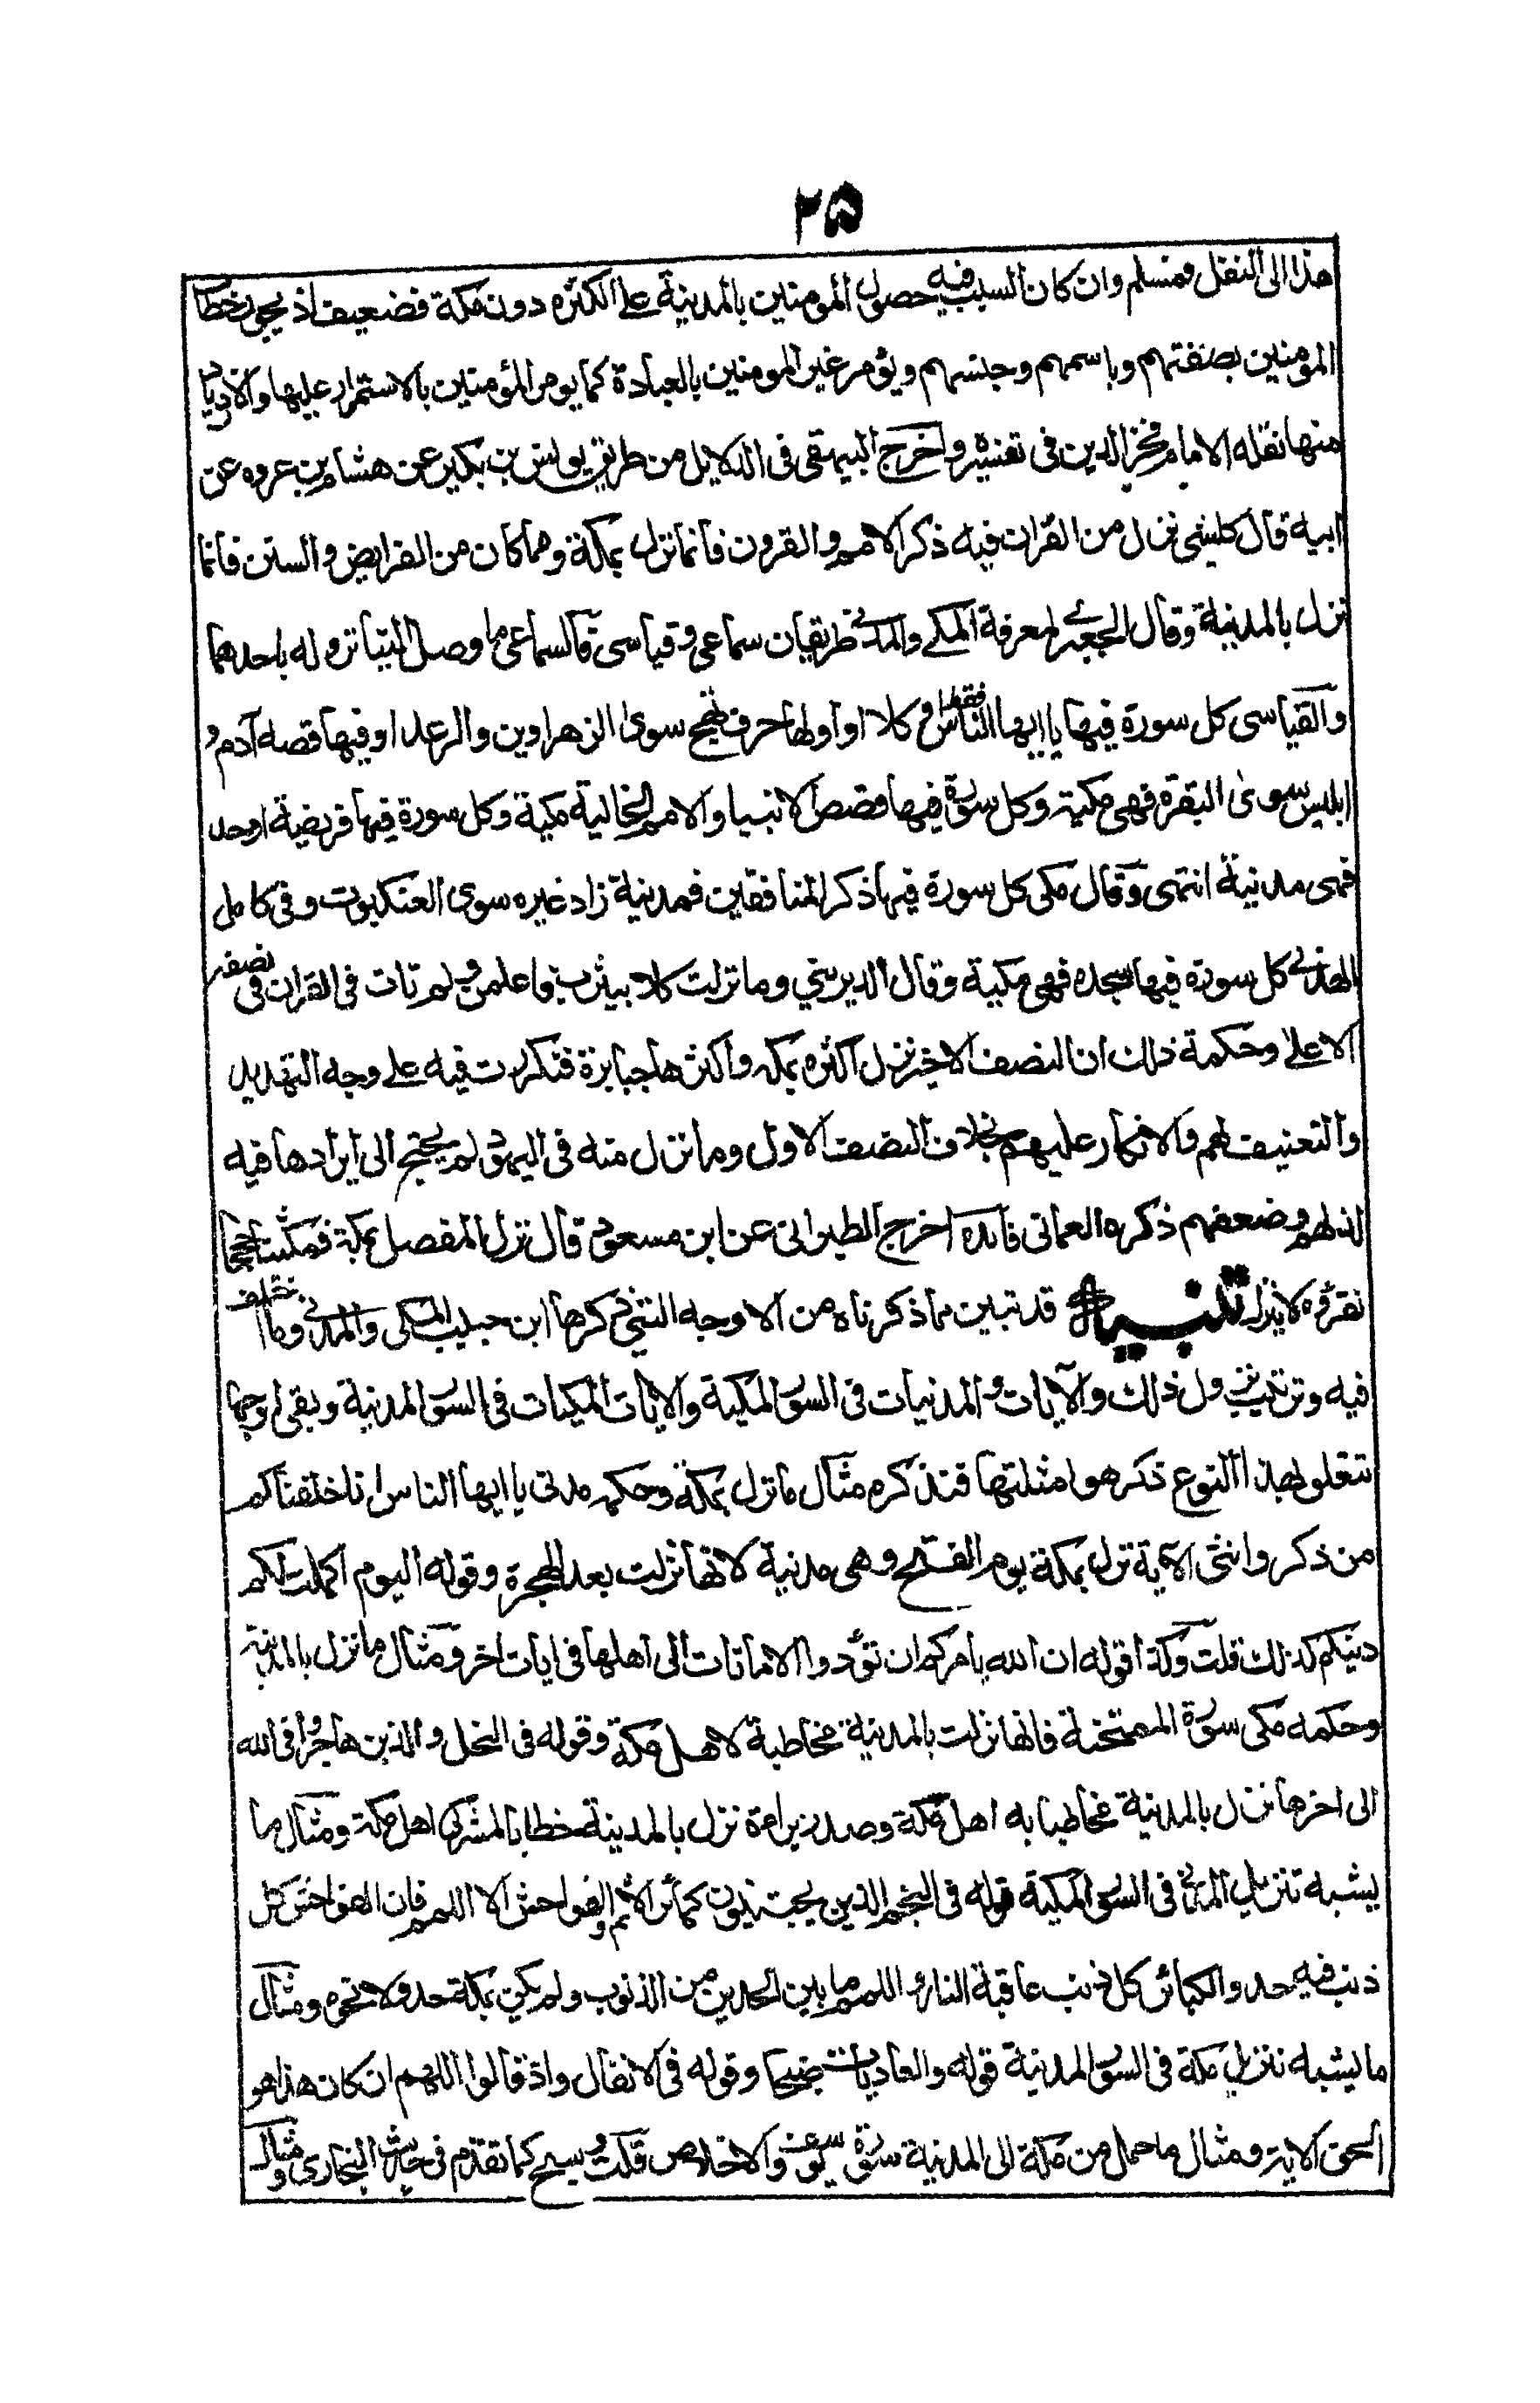 ٢٥
هذا الى النقل فمسلم وان كان السبب فيه حصول المومنين بالمدينة على الكثره دون مكة فضعيف اذ يجوز خطاب
المومنين بصفتهم وباسمهم وجنسهم ويؤمر غير المومنين بالعبادة كما يومر المؤمنين بالاستمرار عليها والازدياد
منها نقله الامام فخر الدين فى تفسيره واخرج البيهقى فى الدلايل من طريق يونس بن بكير عن هشام بن عروه عن
ابيه قال كلشى نزل من القران فيه ذكر الامم والقرون فانما نزل بمكة وما كان من الفرايض والسنن فانما
نزل بالمدينة وقال الجعبرى لمعرفة المكى والمدنى طريقان سماعى وقياسى فالسماعى ما وصل الينا نزوله باحدهما
والقياسى كل سورة فيها يا ايها الناس فقط و كلا او اولها حرف تهج سوى الزهراوين والرعد او فيها قصه آدم و
ابليس سوى البقرة فهى مكية وكل سورة فيها قصص الانبيا والامم الخالية مكية وكل سورة فيها فريضة اوحد
فهى مدنية انتهى وقال مكى كل سورة فيها ذكر المنافقين فمدنية زاد غيره سوى العنكبوت وفى كامل
الهذلى كل سورة فيها سجده فهى مكية وقال الديرينى وما نزلت كلا بيثرب فاعلمن ولم تات فى القران فى نصفه
الاعلى وحكمة ذلك ان النصف الاخير نزل اكثره بمكه واكثرها جبابرة فتكررت فيه على وجه التهديد
والتعنيف لهم والانكار عليهم بخلاف النصف الاول وما نزل منه فى اليهود لم يحتج الى ايرادها فيه
لذلهم وضعفهم ذكره العمانى فايده اخرج الطبرانى عن ابن مسعود قال نزل المفصل بمكة فمكثنا حججا
نقرؤه لا ينزل تنبيه قد تبين مما ذكرناه من الاوجه التى ذكرها ابن حبيب المكى والمدنى وما اختلف
فيه وترتيب نزول ذلك والآيات المدنيات فى السور المكية والايات المكيات فى السور المدنية وبقى اوجه
تتعلق بهذا النوع ذكر هو امثلتها فنذكره مثال ما نزل بمكة وحكمه مدنى يا ايها الناس انا خلقناكم
من ذكر وانثى الاية نزل بمكة يوم الفتح وهى مدنية لانها نزلت بعد الهجرة وقوله اليوم اكملت لكم
دينكم كذلك قلت وكذا قوله ان الله يامركم ان تؤدوا الامانات الى اهلها فى ايات اخر ومثال ما نزل بالمدينة
وحكمه مكى سورة الممتحنة فانها نزلت بالمدنية مخاطبة لاهل مكة وقوله فى النحل والذين هاجروا فى الله
الى اخرها نزل بالمدنية مخاطبا به اهل مكة وصدر براءة نزل بالمدينة خطابا لمشركى اهل مكة ومثال ما
يشبه تنزيل المدنى فى السور المكية قوله فى النجم الذين يجتنبون كبائر الاثم والفواحش الا اللمم فان الفواحش كل
ذنب فيه حد والكبائر كل ذنب عاقبة النار واللمم ما بين الحدين من الذنوب ولم يكن بمكة حد ولا نحوه ومثال
ما يشبه تنزيل مكة فى السور المدنية قوله والعاديات ضبحا وقوله فى الانفال واذ قالوا اللهم ان كان هذا هو
الحق الاية ومثال ما حمل من مكة الى المدنية سورة يوسف والاخلاص قلت وسبح كما تقدم فى حديث البخارى ومثال